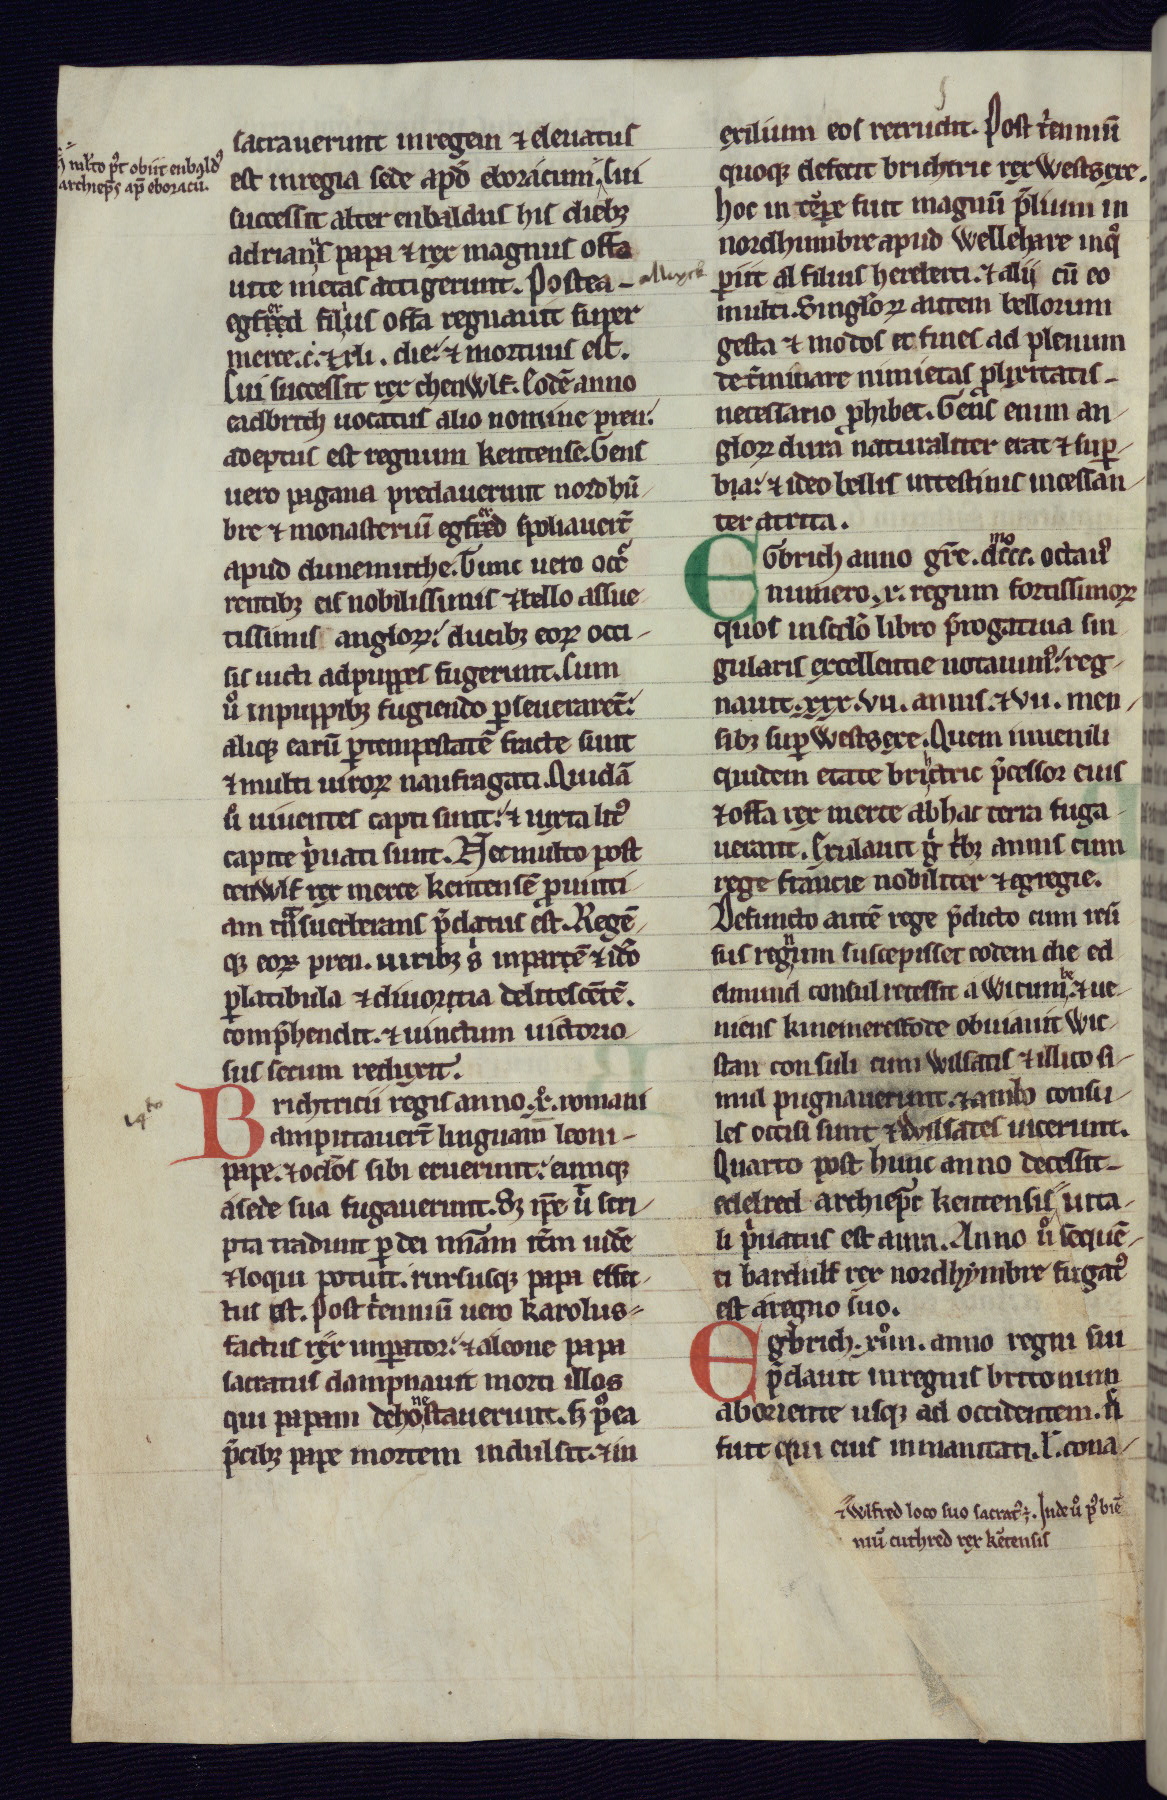 sacrauerunt in regem ⁊ eleuatus
est in regia sede apđ eboracum. Cui
successit alter enbaldus his dieb;
adrianus papa ⁊ rex magnus offa
uite metas attigerunt. Postea
egfred filius offa regnauit super
merce. c. ⁊ xli. die. ⁊ mortuus est.
Cui successit rex chenwlf. Eodē anno
eadbrith uocatus alio nomine pren.
adeptus est regnum kentense. Gens
uero pagana predauerunt nordhū
bre ⁊ monasteriū egfred spoliauert̄
apud dunemuthe. Tunc uero occ̄
rentib; eis nobilissimis ⁊ bello assue
tissimis angloꝝ. ducib; eoꝝ occi
sis uicti ad puppes fugerunt. Cum
ů in puppib; fugiendo ꝑseuerarent̄.
aliq; earū ꝑ tempestatē fracte sunt
⁊ multi uiroꝝ naufragati. Quidā
ů uiuentes capti sunt. ⁊ iuxta lit᾽
capite p̍uati sunt. Nec multo post
cenwlf rex merce kentensē ꝓuinci
am t̾nsuerberans p̄datus est. Regē
q; eoꝝ pren. uirib; s̍ inparē ⁊ id̄o
ꝑ latibula ⁊ diuorticia delitescētē.
comp̄hendit. ⁊ uinctum uictorio
sus secum reduxit.
Brichtricū regis anno .x̊. romani
amputauert̄ linguam leoni
pape. ⁊ oclos̄ sibi eruerunt. eumq;
a sede sua fugauerunt. Sꝫ ip̄e ut̄ scri
pta tradunt ꝑ dei nn̄am it̄m uidē
⁊ loqui potuit. rursusq; papa effec
tus est. Post t̍enniū uero karolus
factus rex inꝑator. ⁊ a leone papa
sacratus dampnauit morti illos
qui papam dehonestauerunt. sꝫ p̊ea
p̄cib; pape mortem indulsit. ⁊ in
exilium eos retrudit. Post t̍ennū
quoq; defecit brichtric rex westsexe.
hoc in tēpore fuit magnū p̄lium in
nordhumbre apud wellehare in q̊
ꝑiit al filius hereberti. ⁊ alij cū eo
multi. Singloꝝ autem bellorum
gesta ⁊ modos et fines ad plenum
det̄minare nimietas ꝓlixitatis
necessario ꝓhibet. Gens enim an
gloꝝ dura naturaliter erat ⁊ suꝑ
bia. ⁊ ideo bellis intestinis incessan
ter atrita.
Egbrich anno gr̄e. dccc.mo octau᾽
numero. x. regum fortissimoꝝ
quos in scd̄o libro p̄rogatiua sin
gularis excellentie notauim᾽. reg
nauit. xxx. vii. annis. ⁊ vii. men
sib; suꝑ westsexe. Quem iuuenili
quidem etate brichtric p̄cessor eius
⁊ offa rex merce ab hac terra fuga
uerant. Exulauit g̊ t̍b; annis cum
rege francie nobiliter ⁊ egregie.
Defuncto autē rege p̄dicto cum reu̍
sus regnum suscepisset eodem die ed
elmund consul recessit a wicumbe. ⁊ ue
niens kinemeresforde obuiauit wic
stan consuli cum wilsatis ⁊ illico si
mul pugnauerunt. ⁊ ambo consu
les occisi sunt ⁊ wilsates uicerunt.
Quarto post hunc anno decessit
edelred archiep̄c kentensis uita
li p̍uatus est aura. Anno ů sequē
ti bardulf rex nordhymbre fugat᾽
est a regno suo.
Egbrich. xiiii. anno regni sui
p̄dauit in regnis britonum
ab oriente usq; ad occidentem. n̄
fuit qui eius inmanitati. l̄. cona
n̄ multo p᾽t obiit enbald᾽
archiep̄s ap̄ eboracū.
⁊ wlfred loco suo sacrat᾽ ē. Inde ů p᾽ biē
niū cuthred rex kētensis